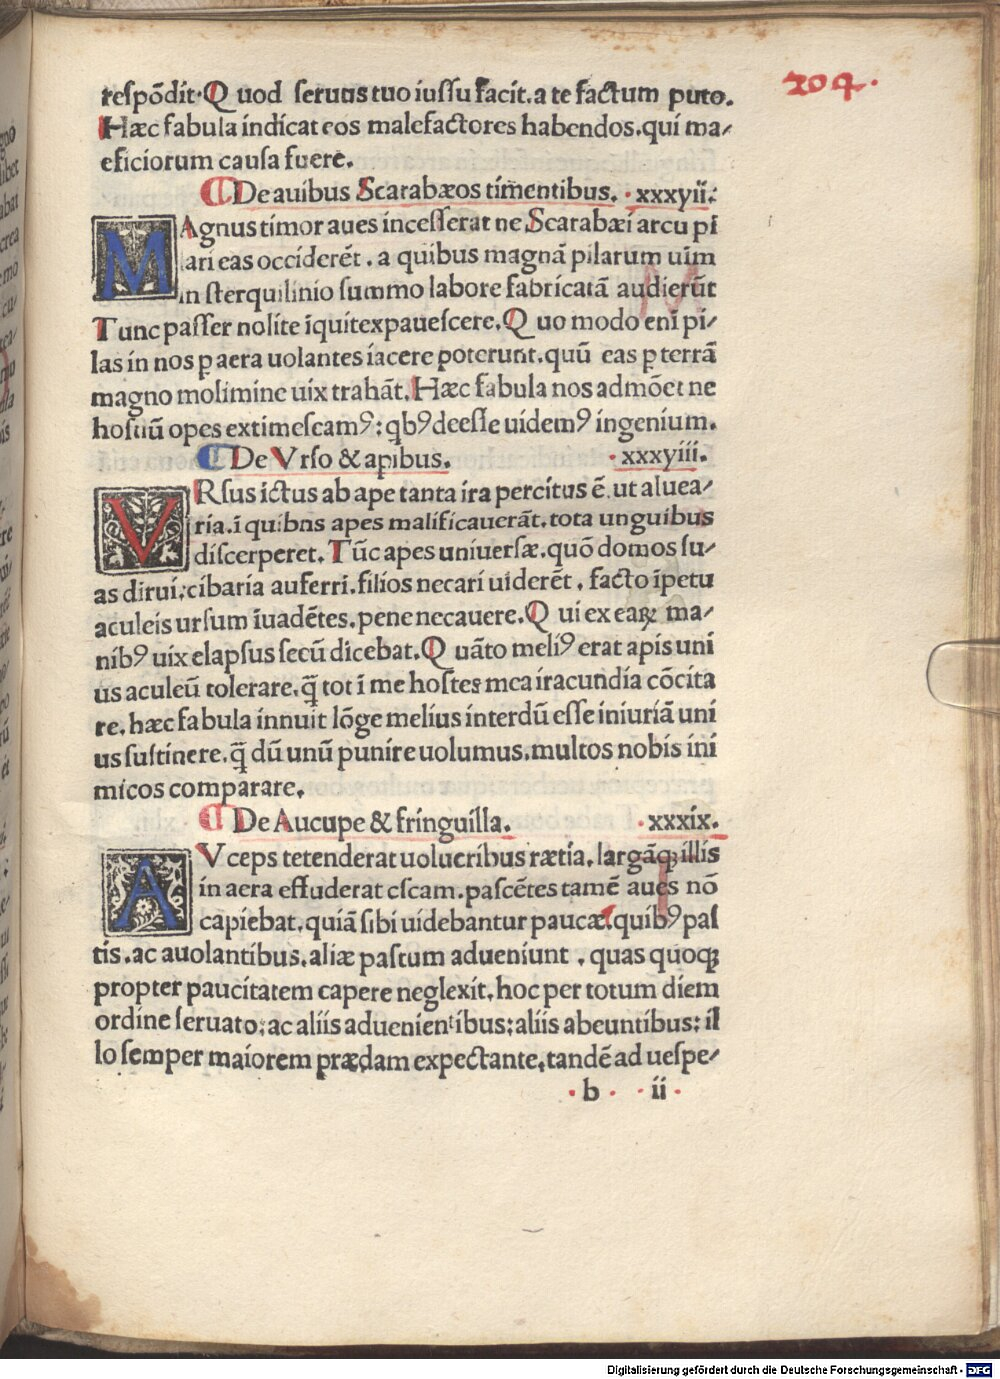 204.
respõdit. Quod seruus tuo iussu facit. a te factum puto.
Hæc fabula indicat eos malefactores habendos. qui ma⸗
eficiorum causa fuere.
De auibus Scarabæos timentibus. .xxxyii.
MAgnus timor aues incesserat ne Scarabæi arcu pi
lari eas occiderẽt. a quibus magnã pilarum uim
in sterquilinio summo labore fabricatã audierũt
Tunc passer nolite ĩquit expauescere. Quo modo enĩ pi⸗
las in nos ꝑ aera uolantes iacere poterunt. quũ eas ꝑ terrã
magno molimine uix trahãt. Hæc fabula nos admõet ne
hostiũ opes extimescamꝰ: qbꝰ deesse uidemꝰ ingenium.
De Vrso & apibus. .xxxyiii.
VRsus ictus ab ape tanta ira percitus ẽ. ut aluea⸗
ria. ĩ quibns apes malificauerãt. tota unguibus
discerperet. Tũc apes uniuersæ. quõ domos su⸗
as dirui: cibaria auferri. filios necari uiderẽt. facto ĩpetu
aculeis ursum ĩuadẽtes. pene necauere. Qui ex eaꝝ ma⸗
nibꝰ uix elapsus secũ dicebat. Quãto meliꝰ erat apis uni
us aculeũ tolerare. q̃ tot ĩ me hostes mea iracundia cõcita
re. hæc fabula innuit lõge melius interdũ esse iniuriã uni
us sustinere. q̃ dũ unũ punire uolumus. multos nobis ini
micos comparare.
De Aucupe & fringuilla. .xxxix.
AVceps tetenderat uolucribus rætia. largãꝗ illis
in aera effuderat escam. pascẽtes tamẽ aues nõ
capiebat. quiã sibi uidebantur paucæ. quibꝰ pas
tis. ac auolantibus. aliæ pastum adueniunt. quas quoꝗ
propter paucitatem capere neglexit. hoc per totum diem
ordine seruato: ac aliis aduenientibus: aliis abeuntibus: il
lo semper maiorem prædam expectante. tandẽ ad uespe⸗
. b . . ii .
Digitalisierung gefördert durch die Deutsche Forschungsgemeinschaft - DFG